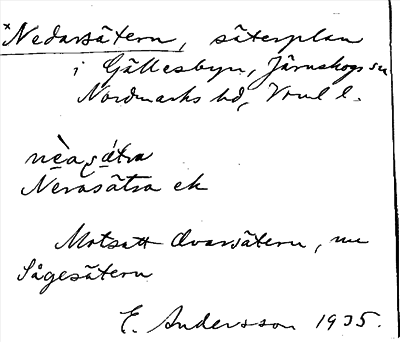 *Nedansätern, säterplan
i Gällesbyn, Järnskogs sn
Nordmarks hd, Vrml l.
Nerasätra ek
Motsatt Ovansätern, nu
Sågesätern
E. Andersson 1935.